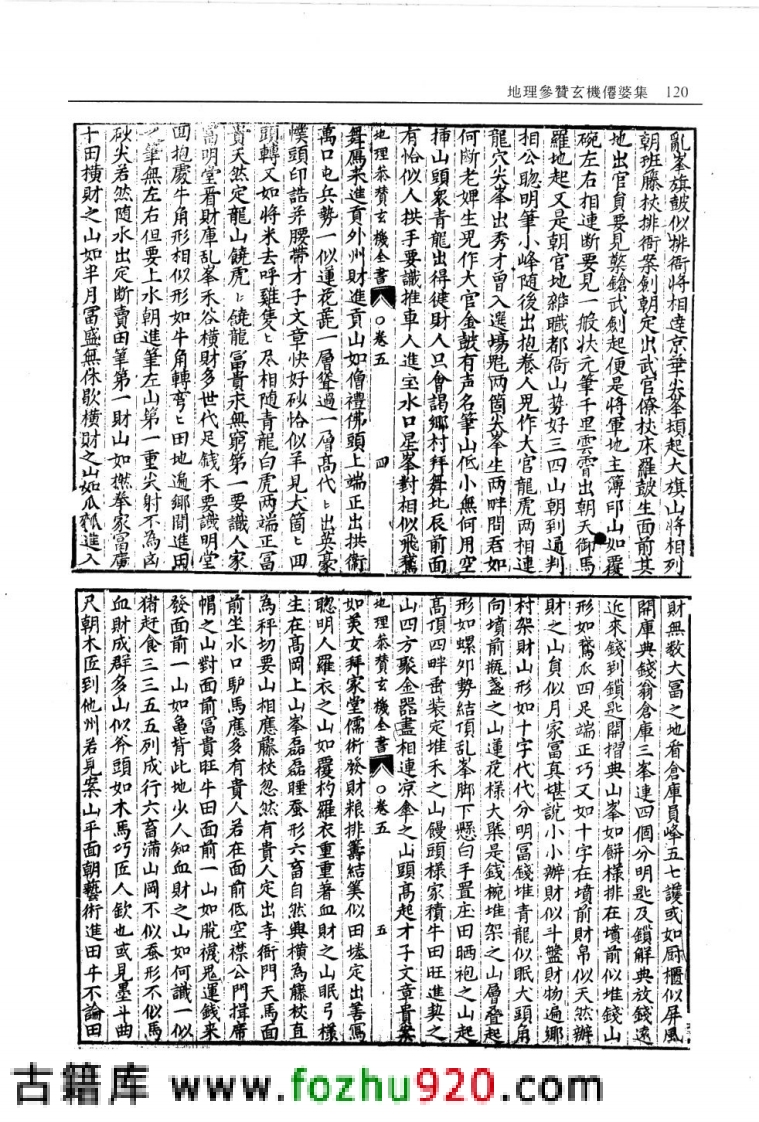 地理參贊玄機僊婆集 120
亂峯旗皷似排衙將相達京華尖峯頭起大旗山將相列
朝班藤杖排衙案劊朝定出武官僚校床羅皷生面前其
地出官員要見槊鎗武劊起便是將軍地主簿印山如覆
碗左右相連斷要見一般状元筆千里雲霄出朝天御馬
羅地起又是朝官地雜職都衙山勢好三四山朝到通判
相公聰明筆小峰随後出抱養人兒作大官龍虎兩相連
龍穴尖峯出秀才曾入選場魁两箇尖峯生两畔問君如
何断老婢生兒作大官金皷有声名筆山低小無何用空
揷山頭衆青龍出得徤財人只會謁鄉村拜舞北辰前面
有恰似人拱手要識推車人進宝水口星峯對相似飛鵞
地理叅贊玄機全書 卷五 四
舞鳳來進貢外州財進貢山如僧禮佛頭上端正出拱衛
萬口屯兵勢一似蓮花蓋一層聳過一層髙代〻出英豪
幞頭印誥并腰帶才子文章快好砂恰似羊見大箇〻回
頭轉又如將米去呼雞隻〻尽相随青龍白虎两端正冨
貴天然定龍山饒虎〻饒龍冨貴永無窮第一要識人家
冨明堂看財庫乱峯禾谷横財多世代足銭禾要識明堂
面抱處牛角形相似形如牛角轉弯〻田地遍鄉間進田
之筆無左右但要上水朝進筆左山第一重尖射不為凶
砂尖若然随水出定断賣田筆第一財山如撚拳家冨廣
十田横財之山如半月冨盛無休歇横財之山如瓜瓠進入
財無数大冨之地看倉庫員峰五七護或如厨櫃似屏風
開庫典錢翁倉庫三峯連四個分明匙及鎖解典放錢遠
近來錢到鎖匙開摺典山峯如餅様排在墳前似堆錢山
形如鵞爪四足端正巧又如十字在墳前財帛似天然辦
財之山負似月家冨真堪説小小辦財似斗盤財物遍鄉
村架財山形如十字代代分明冨錢堆青龍似眠大頭角
向墳前瓶盞之山蓮花様大槩是錢椀堆架之山層叠起
形如螺夘勢結頂乱峯脚下懸白手置庄田晒袍之山起
髙頂四畔垂裝定堆禾之山饅頭様家積牛田旺進契之
山四方聚金器盡相連凉傘之山頭髙起才子文章貴案
地理叅贊玄機全書 卷五 五
如美女拜家堂儒術發財粮排籌結筭似田塍定出善寫
聰明人羅衣之山如覆杓羅衣重重著血財之山眠弓様
生在髙岡上山峯磊磊睡蚕形六畜自然興横為藤杖直
為秤切要山相應藤杖忽然有貴人定出寺衙門天馬面
前坐水口馿馬應多有貴人若在面前低空襟公門揖席
帽之山對面前冨貴旺牛田面前一山如脱襪鬼運錢来
發面前一山如亀背此地少人知血財之山如何識一似
猪赶食三三五五列成行六畜滿山岡不似蚕形不似馬
血財成群多山似斧頭如木馬巧匠人欽也或見墨斗曲
尺朝木匠到他州若見案山平面朝藝術進田牛不論田
古籍库 www.fozhu920.com